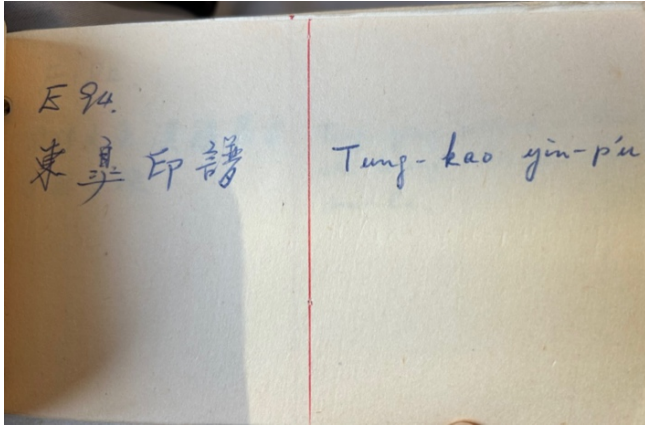 E 94.
東臯印譜
Tung-kao yin-p'u